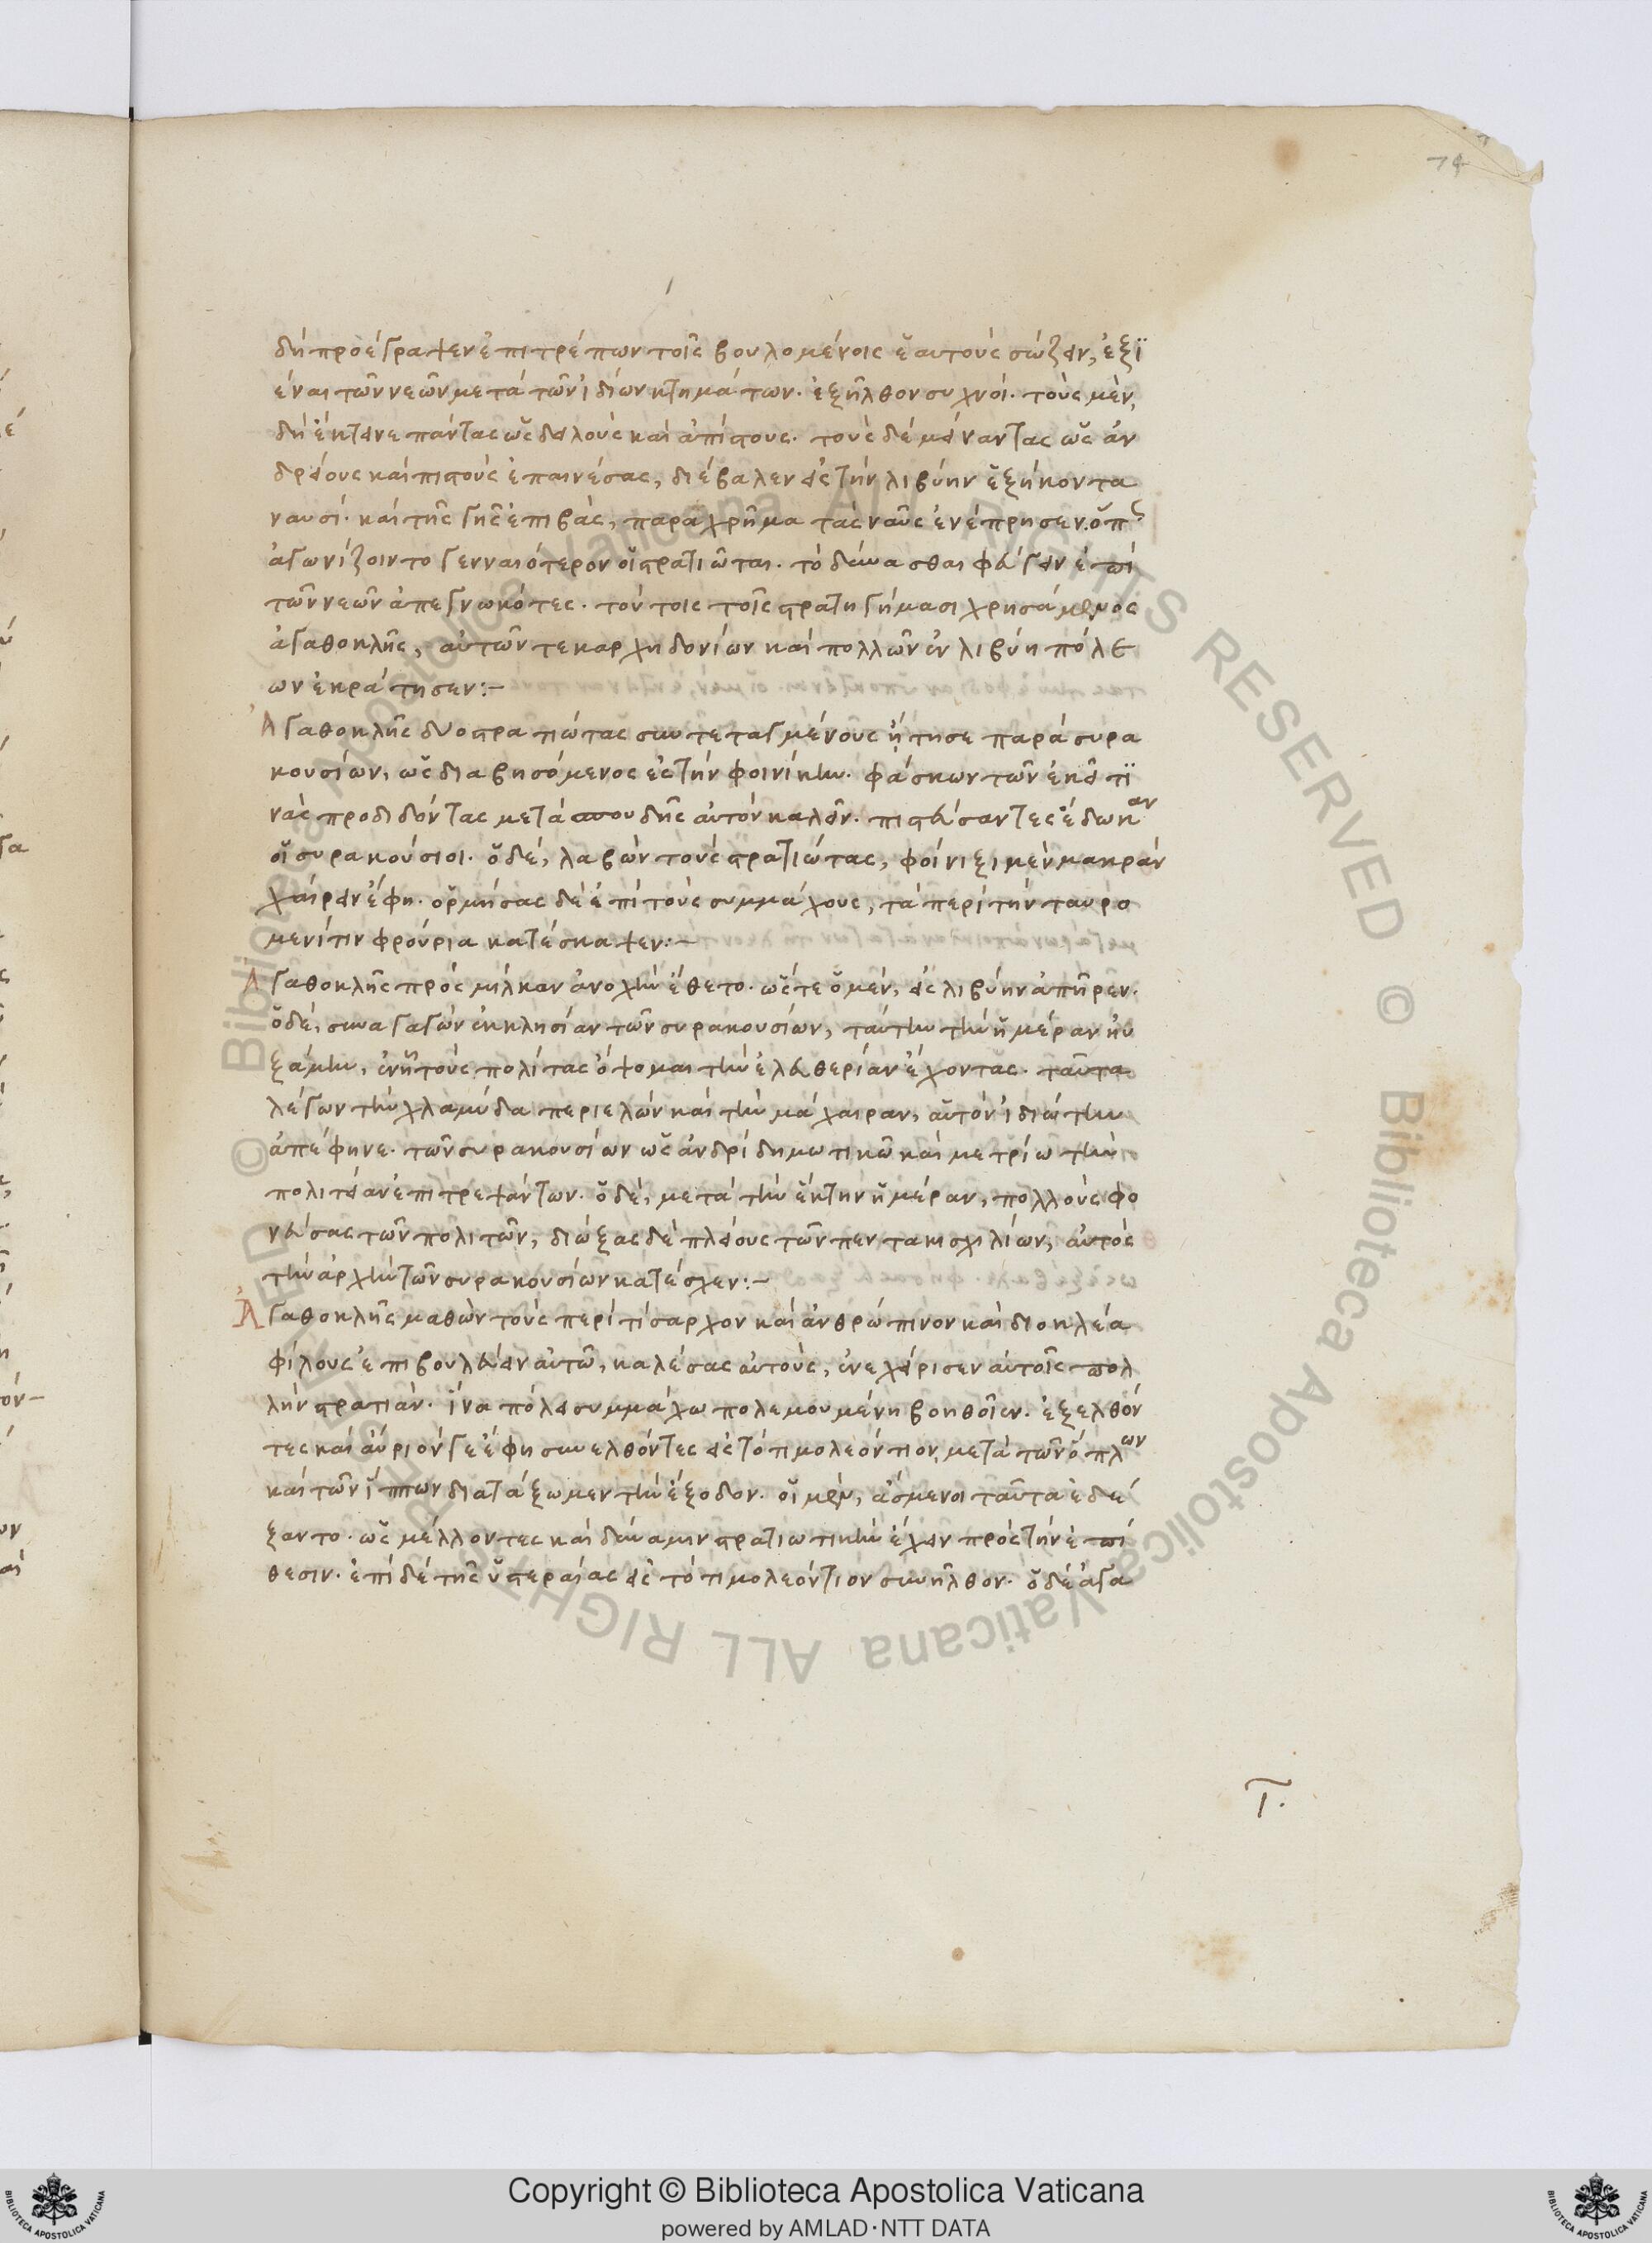 74
δὴ προέγραψεν ἐπιτρέπων τοῖς βουλομένοις ἑαυτοὺς σώζειν, ἐξϊ
έναι τῶν νεῶν μετὰ τῶν ἰδίων κτημάτων. ἐξῆλθον συχνοί. τοὺς μὲν,
δὴ ἔκτεινε πάντας ὡς δειλοὺς καὶ ἀπίστους. τοὺς δὲ μείναντας ὡς ἀν
δρείους καὶ πιστοὺς ἐπαινέσας, διέβαλεν εἰς τὴν λιβύην ἑξήκοντα
ναυσί. καὶ τῆς γῆς ἐπιβὰς, παραχρῆμα τὰς ναῦς ἐνέπρησεν. ὅπς
ἀγωνίζοιντο γενναιότερον οἱ στρατιῶται. τὸ δύνασθαι φεύγειν ἐπὶ
τῶν νεῶν ἀπεγνωκότες. τούτοις τοῖς στρατηγήμασι χρησάμενος
ἀγαθοκλῆς, αὐτῶν τε καρχηδονίων καὶ πολλῶν ἐν λιβύη πόλε
ων ἐκράτησεν:-
Ἀγαθοκλῆς δὺο στρατιώτας συντεταγμένους ᾔτησε παρὰ συρα
κουσίων, ὡς διαβησόμενος ἐς τὴν φοινίκην. φάσκων τῶν ἐκεῖ τϊ
νὰς προδιδόντας μετὰ σπουδῆς αὐτὸν καλεῖν. πιστεύσαντες ἔδωκαν
οἱ συρακούσιοι. ὁ δὲ, λαβὼν τοὺς στρατιώτας, φοίνιξι μὲν μακρὰν
χαίρειν ἔφη. ὁρμήσας δὲ ἐπὶ τοὺς συμμάχους, τὰ περὶ τὴν ταυρο
μενίτιν φρούρια κατέσκαψεν:-
Ἀγαθοκλῆς πρὸς μίλκαν ἀνοχὴν ἔθετο. ὥστε ὁ μὲν, εἰς λιβύην ἀπῆρεν.
ὁ δὲ, συναγαγὼν ἐκκλησίαν τῶν συρακουσίων, ταύτην τὴν ἡμέραν ηὐ
ξάμην, ἐν ᾗ τοὺς πολίτας ὄψομαι τὴν ἐλευθερίαν ἔχοντας. ταῦτα
λέγων τὴν χλαμύδα περιελὼν καὶ τὴν μάχαιραν, αὑτὸν ἰδιώτην
ἀπέφηνε. τῶν συρακουσίων ὡς ἀνδρὶ δημωτικῶ καὶ μετρίω τὴν
πολιτείαν ἐπιτρεψάντων. ὁ δὲ, μετὰ τὴν ἕκτην ἡμέραν, πολλοὺς φο
νεύσας τῶν πολιτῶν, διώξας δὲ πλείους τῶν πεντακισχιλίων, αὐτὸς
τὴν ἀρχὴν τῶν συρακουσίων κατέσχεν:-
Ἀγαθοκλῆς μαθὼν τοὺς περὶ τίσαρχον καὶ ἀνθρώπινον καὶ διοκλέα
φίλους ἐπιβουλεύειν αὐτῶ, καλέσας αὐτοὺς, ἐνεχείρισεν αὐτοῖς πολ
λὴν στρατιὰν. ἵνα πόλει συμμάχω πολεμουμένη βοηθοῖεν. ἐξελθόν
τες καὶ αὔριόν γε ἔφη συνελθόντες εἰς τὸ τιμολεόντιον, μετὰ τῶν ὅπλων
καὶ τῶν ἵππων διατάξωμεν τὴν ἔξοδον. οἱ μὲν, ἄσμενοι ταῦτα ἐδέ
ξαντο. ὡς μέλλοντες καὶ δύναμιν στρατιωτικὴν ἔχειν πρὸς τὴν ἐπί
θεσιν. ἐπὶ δὲ τῆς ὑστεραίας εἰς τὸ τιμολεόντιον συνῆλθον. ὁ δὲ ἀγα
Τ.
© Biblioteca Apostolica Vaticana ALL RIGHTS RESERVED
Copyright © Biblioteca Apostolica Vaticana
powered by AMLAD·NTT DATA